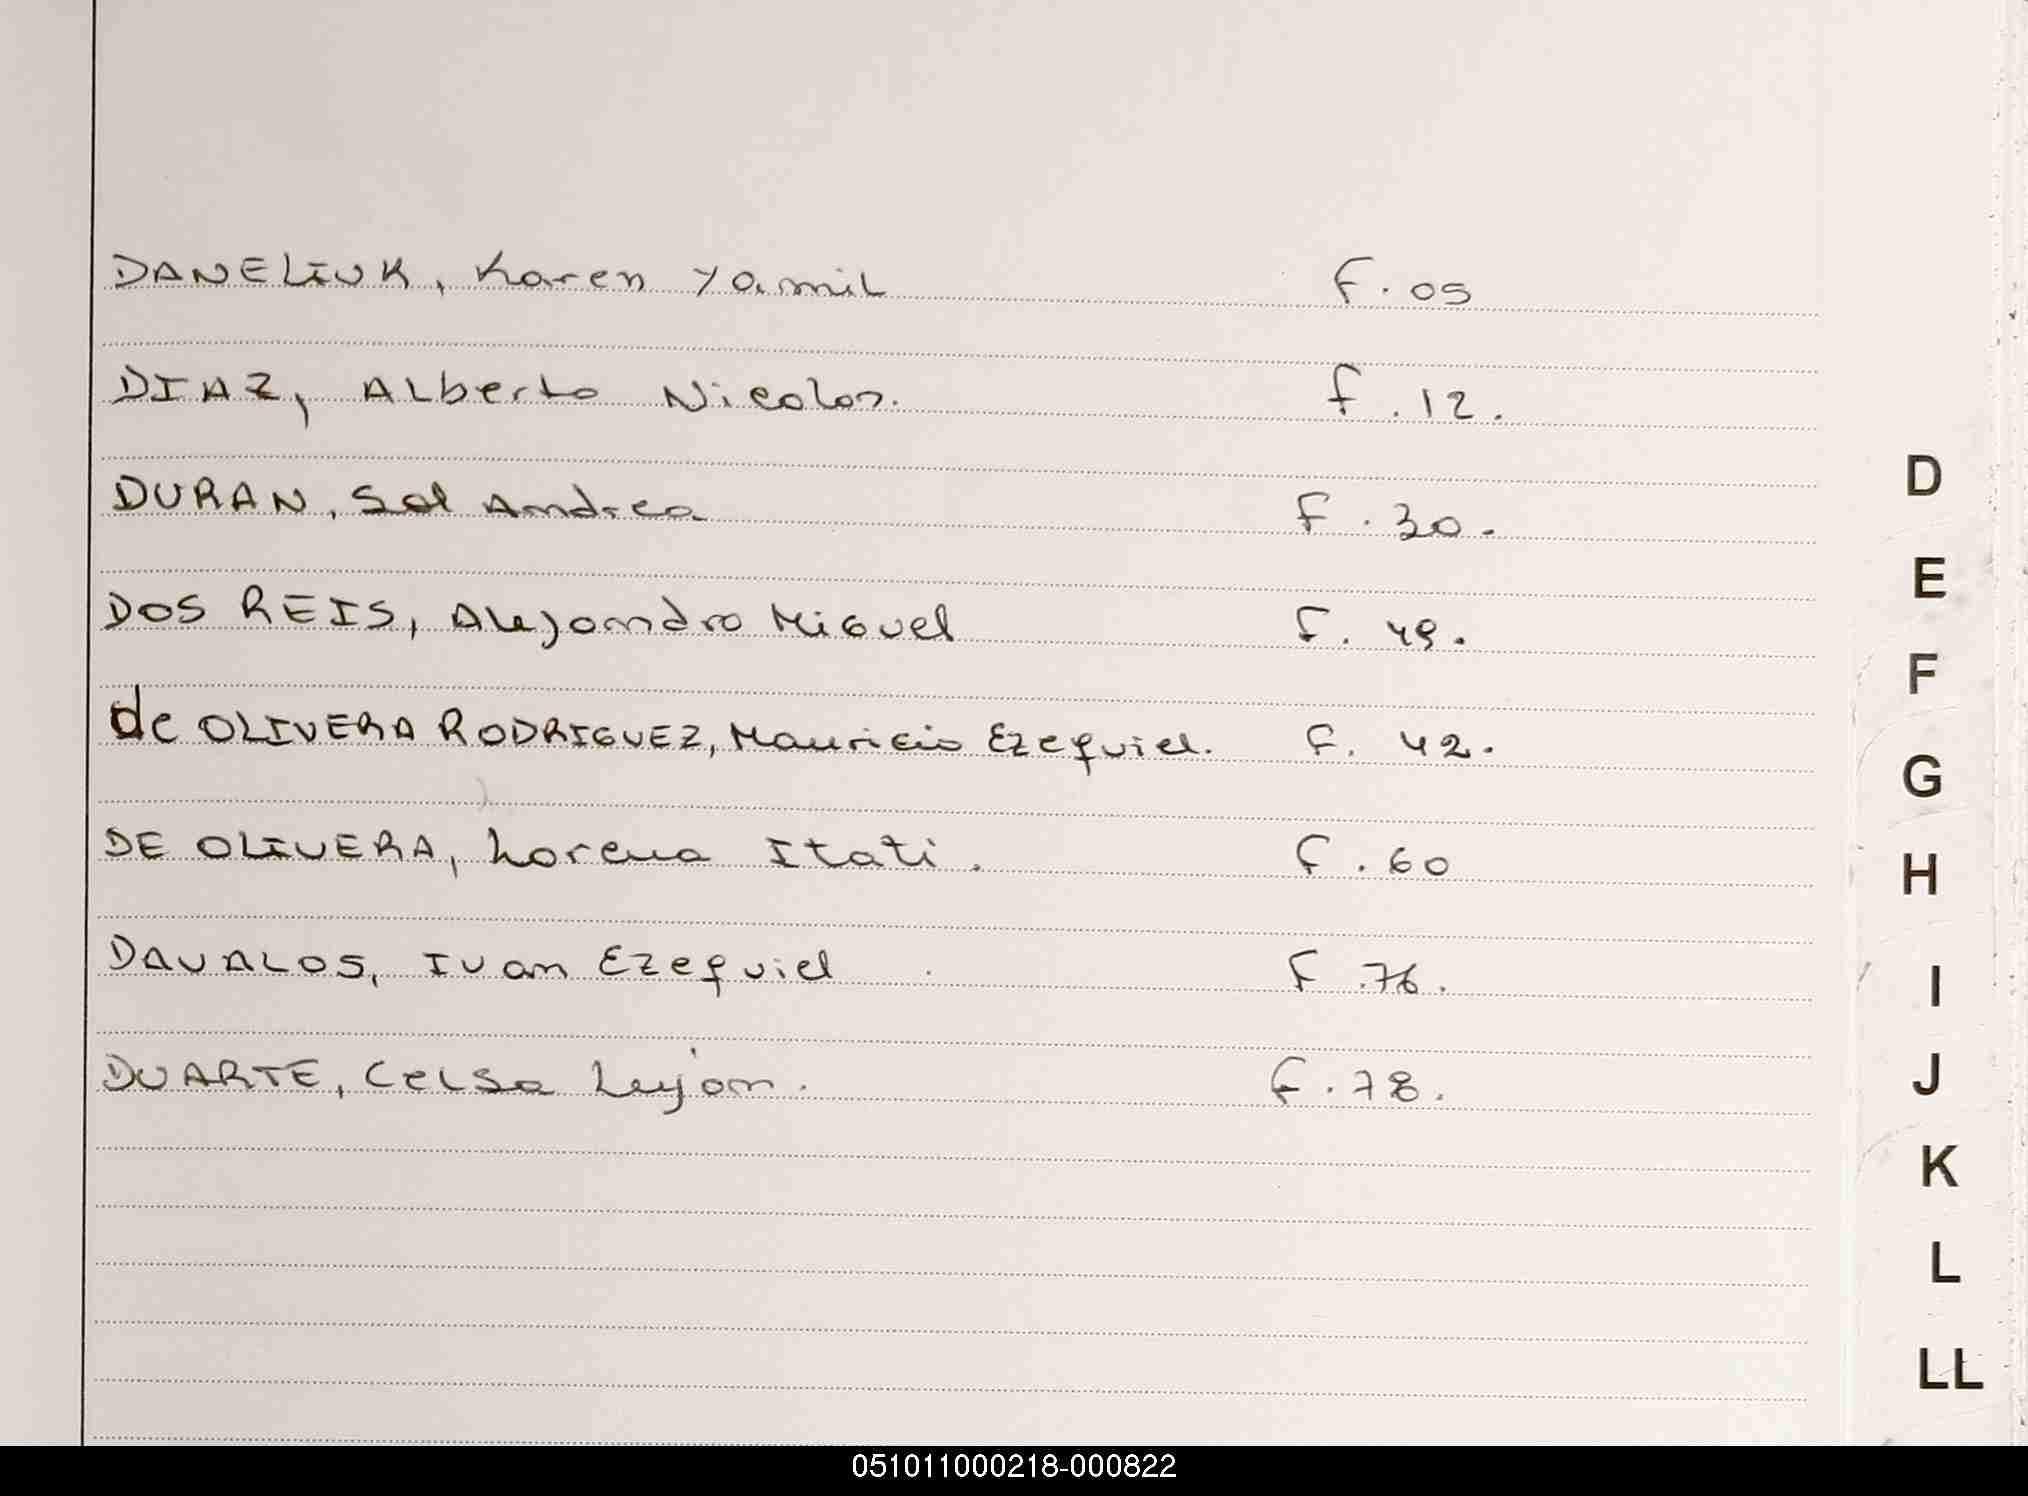 DANELIUK, Karen Yamil F. 05
DIAZ, Alberto Nicolas. F. 12.
DURAN, Sol Andrea F. 30.
DOS REIS, Alejandro Miguel F. 49.
de OLIVERA RODRIGUEZ, Mauricio Ezequiel. F. 42.
DE OLIVERA, Lorena Itati. F. 60
DAVALOS, Ivan Ezequiel F. 76.
DUARTE, Celsa Lujan. F. 78.
D
E
F
G
H
I
J
K
L
LL
051011000218-000822